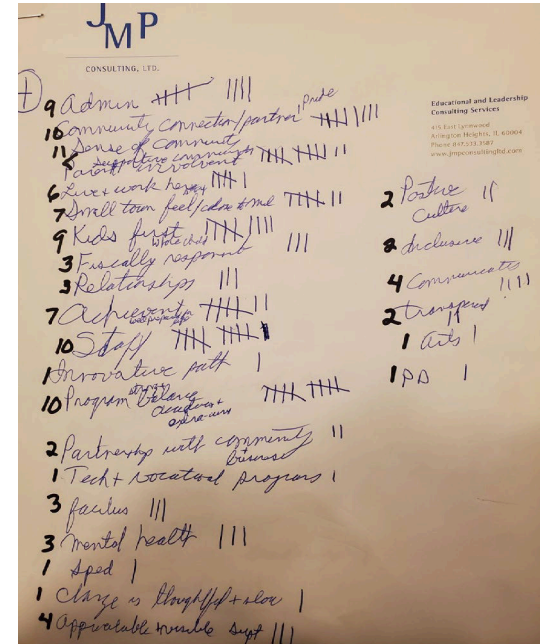 JMP
CONSULTING, LTD.
Educational and Leadership
Consulting Services
415 East Lynnwood
Arlington Heights, IL 60004
www.jmpconsultingltd.com
+
9 Admin
10 Community connection/partner Pride
11 Sense of community
supportive community
Parent involvement
6 Live + work here
7 Small town feel/
9 Kids first
whole child
3 Fiscally
3 Relationships
7
10 Staff
1 Innovative path
10 Program balance
strong
academics +
extra-curr
2 Partnership with community
business
1 Tech + vocational programs
3
3 Mental health
1 Sped
1 Change is thoughtful + slow
4 visible supt
2 Positive
Culture
Inclusive
4
2
1 Arts
1 PD